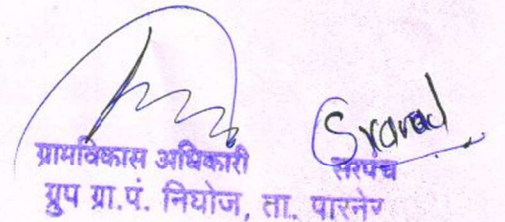 ग्रामविकास अधिकारी सरपंच
ग्रुप ग्रा.पं. निघोज, ता. पारनेर